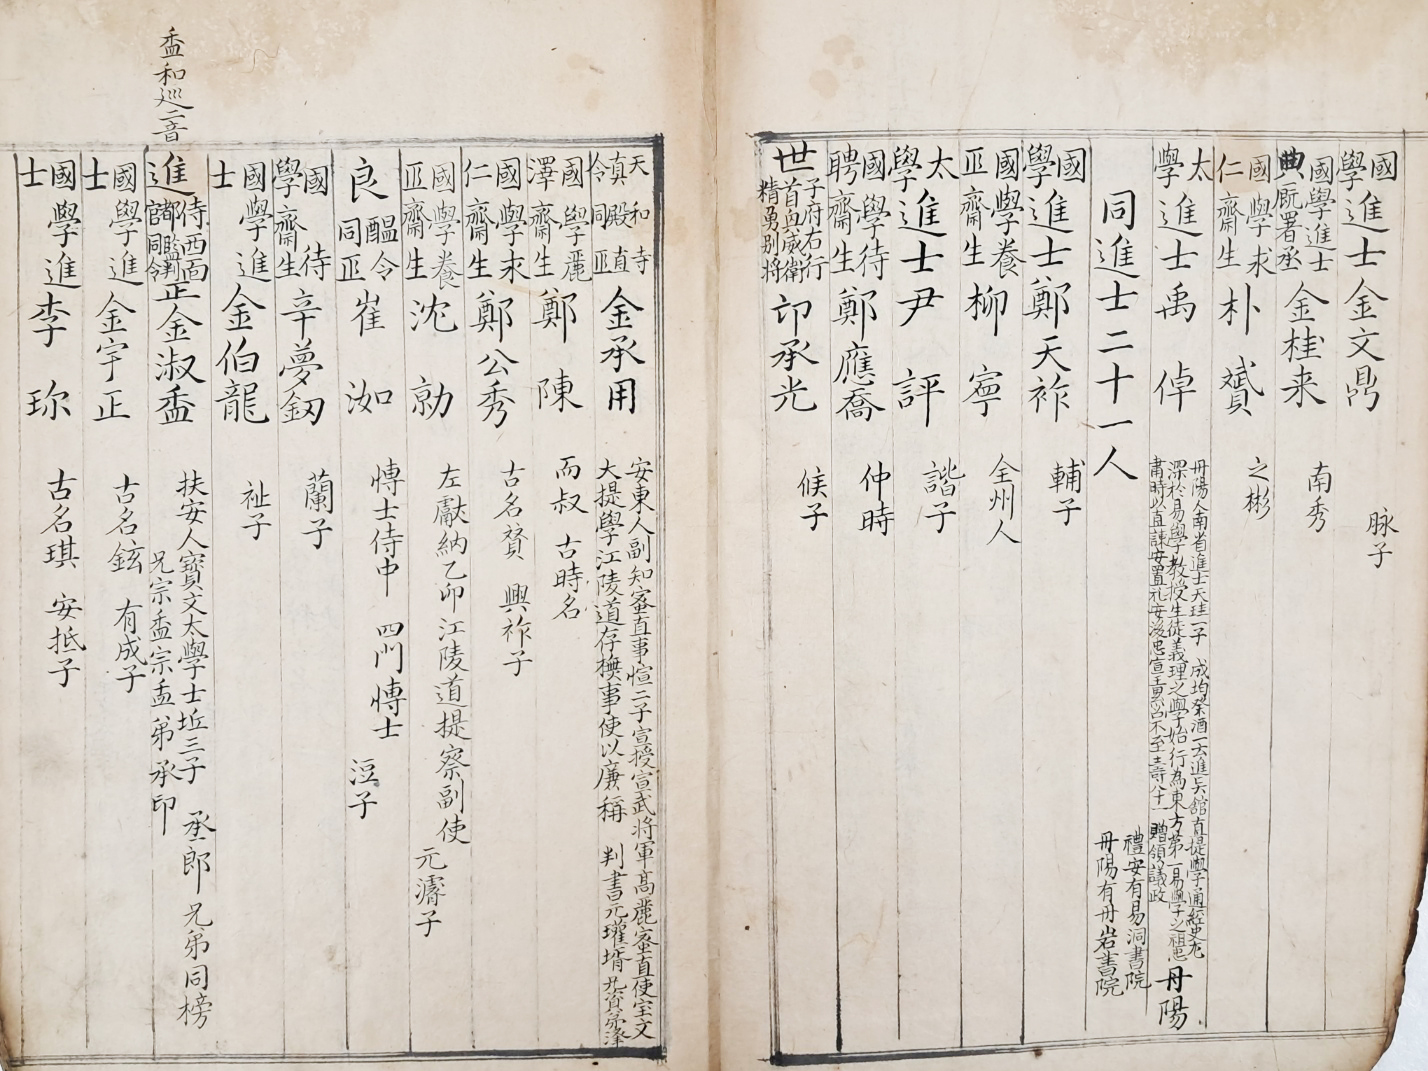 國學進士金文鼎 脉子
國學進士典廐署丞金桂来 南秀
國學求仁齋生朴贇 之彬
太學進士禹倬 丹陽人南省進士天珪一子 成均祭酒一云進兵舘直提學通經史尤深於易學教授生徒義理之學始行為東方第一易學之祖忠肅時以直諫安置礼安後忠宣王惠召不至壽八十一 贈領議政 丹陽
同進士二十一人 禮安有易洞書院丹陽有丹岩書院
國學進士鄭天祚 輔子
國學養正齋生柳寧 全州人
太學進士尹評 諧子
國學待聘齋生鄭應喬 仲時
世子府右行首興威衛精勇别將印承光 候子
天和寺真殿直令同正金承用 安東人副知宻直事愃二子宣授宣武將軍高麗宻直使宝文大提學江陵道存撫事使以廉稱 判書元瓘壻
國學麗澤齋生鄭陳 而叔 古時名
國學求仁齋生鄭公秀 古名贇 興祚子
國學養正齋生沈勍 左獻納乙卯江陵道提察副使 元濬子
良醞令同正崔洳 博士侍中 四門博士 洰子
國學待齋生辛夢釰 蘭子
國學進士金伯龍 祉子
待西面都監判官同令正進金淑盉 扶安人寳文太學士坵三子 丞郎 兄弟同榜 兄宗盉宗盂 弟承印
盉和巡二音
國學進士金宇正 古名鉉 有成子
國學進士李珎 古名琪 安抵子